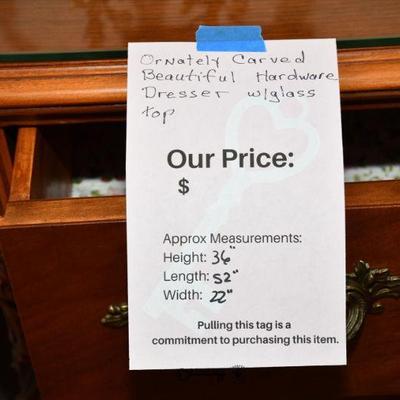 Ornately Carved
Beautiful Hardware
Dresser w/glass
top
Our Price:
$
Approx Measurements:
Height: 36"
Length: 52"
Width: 22"
Pulling this tag is a
commitment to purchasing this item.